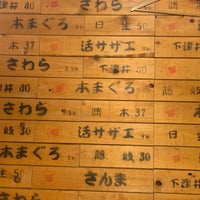 下津井 40 さわら
本まぐろ 日生 50
本 37 活サザエ 下津井
さわら 下津井 40
本まぐろ
さわら 勝本 37
隠岐 30 活サザエ 日
本まぐろ 隠岐 30
生 50 さんま 下津井